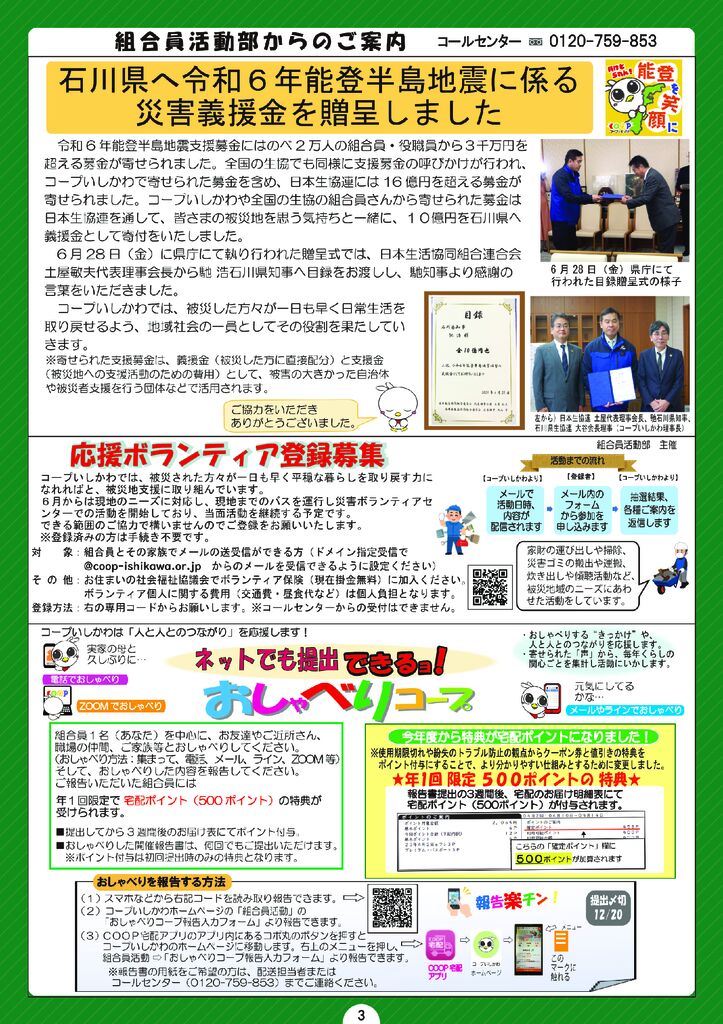 組合員活動部からのご案内 コールセンター 0120-759-853
石川県へ令和6年能登半島地震に係る
災害義援金を贈呈しました
能登を
笑顔に
令和6年能登半島地震支援募金にはのべ2万人の組合員・役職員から3千万円を
超える募金が寄せられました。全国の生協でも同様に支援募金の呼びかけが行われ、
コープいしかわで寄せられた募金を含め、日本生協連には16億円を超える募金が
寄せられました。コープいしかわや全国の生協の組合員さんから寄せられた募金は
日本生協連を通して、皆さまの被災地を思う気持ちと一緒に、10億円を石川県へ
義援金として寄付をいたしました。
6月28日(金)に県庁にて執り行われた贈呈式では、日本生活協同組合連合会
土屋敏夫代表理事会長から馳 浩石川県知事へ目録をお渡しし、馳知事より感謝の
言葉をいただきました。
コープいしかわでは、被災した方々が一日も早く日常生活を
取り戻せるよう、地域社会の一員としてその役割を果たしてい
きます。
※寄せられた支援募金は、義援金(被災した方に直接配分)と支援金
(被災地への支援活動のための費用)として、被害の大きかった自治体
や被災者支援を行う団体などで活用されます。
ご協力をいただき
ありがとうございました。
目録
6月28日(金)県庁にて
行われた目録贈呈式の様子
左から)日本生協連 土屋代表理事会長、馳石川県知事、
石川県生協連 大谷会長理事(コープいしかわ理事長)
応援ボランティア登録募集
組合員活動部 主催
コープいしかわでは、被災された方々が一日も早く平穏な暮らしを取り戻す力に
なれればと、被災地支援に取り組んでいます。
6月からは現地のニーズに対応し、現地までのバスを運行し災害ボランティアセ
ンターでの活動を開始しており、当面活動を継続する予定です。
できる範囲のご協力で構いませんのでご登録をお願いいたします。
※登録済みの方は手続き不要です。
対 象:組合員とその家族でメールの送受信ができる方(ドメイン指定受信で
@coop-ishikawa.or.jp からのメールを受信できるように設定ください)
その他:お住まいの社会福祉協議会でボランティア保険(現在掛金無料)に加入ください。
ボランティア個人に関する費用(交通費・昼食代など)は個人負担となります。
登録方法:右の専用コードからお願いします。※コールセンターからの受付はできません。
活動までの流れ
【コープいしかわより】
メールで
活動日時、
内容が
配信されます
【登録者】
メール内の
フォーム
から参加を
申し込みます
【コープいしかわより】
抽選結果、
各種ご案内を
返信します
家財の運び出しや掃除、
災害ゴミの搬出や運搬、
炊き出しや傾聴活動など、
被災地域のニーズにあわ
せた活動をしています。
コープいしかわは「人と人とのつながり」を応援します!
実家の母と
久しぶりに…
電話でおしゃべり
ZOOMでおしゃべり
ネットでも提出できるョ!
おしゃべりコープ
・おしゃべりする“きっかけ”や、
人と人とのつながりを応援します。
・寄せられた「声」から、毎年くらしの
関心ごとを集計し活動にいかします。
元気にしてる
かな…
メールやラインでおしゃべり
組合員1名(あなた)を中心に、お友達やご近所さん、
職場の仲間、ご家族等とおしゃべりしてください。
(おしゃべり方法:集まって、電話、メール、ライン、ZOOM等)
そして、おしゃべりした内容を報告してください。
ご報告いただいた組合員には
年1回限定で 宅配ポイント(500ポイント)の特典が
受けられます。
■提出してから3週間後のお届け表にてポイント付与。
■おしゃべりした開催報告書は、何回でもご提出いただけます。
※ポイント付与は初回提出時のみの特典となります。
今年度から特典が宅配ポイントになりました!
※使用期限切れや紛失のトラブル防止の観点からクーポン券と値引きの特典を
ポイント付与にすることで、より分かりやすい仕組みとするために変更しました。
★年1回 限定 500ポイントの 特典★
報告書提出の3週間後、宅配のお届け明細表にて
宅配ポイント(500ポイント)が付与されます。
こちらの「確定ポイント」欄に
500ポイントが加算されます
おしゃべりを報告する方法
(1)スマホなどから右記コードを読み取り報告できます。
(2)コープいしかわホームページの「組合員活動」の
「おしゃべりコープ報告入力フォーム」より報告できます。
(3)COOP宅配アプリのアプリ内にあるコボ丸のボタンを押すと
コープいしかわのホームページに移動します。右上のメニューを押し、
組合員活動⇨「おしゃべりコープ報告入力フォーム」より報告できます。
※報告書の用紙をご希望の方は、配送担当者または
コールセンター(0120-759-853)までご連絡ください。
報告楽チン!
提出〆切
12/20
COOP宅配
アプリ
コープいしかわ
ホームページ
メニュー
この
マークに
触れる
3